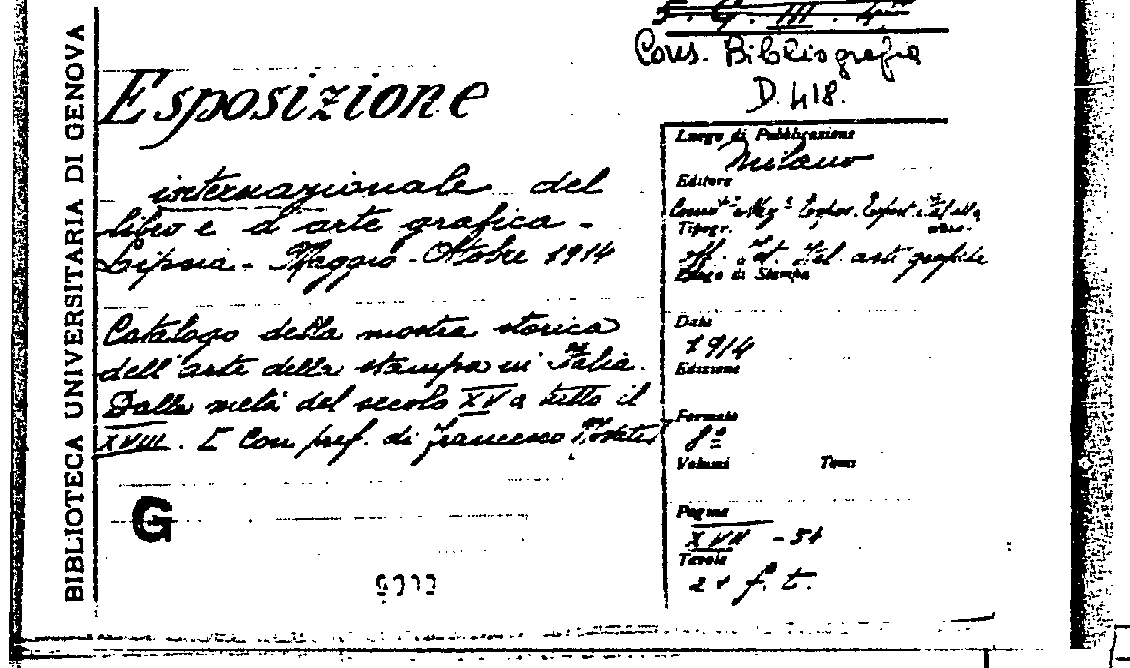 BIBLIOTECA UNIVERSITARIA DI GENOVA
Cons. Bibliografia
D. 418.
Esposizione
internazionale del
libro e d'arte grafica -
Lipsia - Maggio - Ottobre 1914
Catalogo della mostra storica
dell'arte della stampa in Italia.
Dalla metà del secolo XV a tutto il
XVIII. [Con pref. di Francesco
G
Luogo di Pubblicazione
Milano
Editore
Tipogr.
Off. Ist. Ital. arti grafiche
Luogo di Stampa
Data
1914
Edizione
Formato
8º
Volumi Tomi
Pagine
XVII - 51
Tavole
21 f. t.